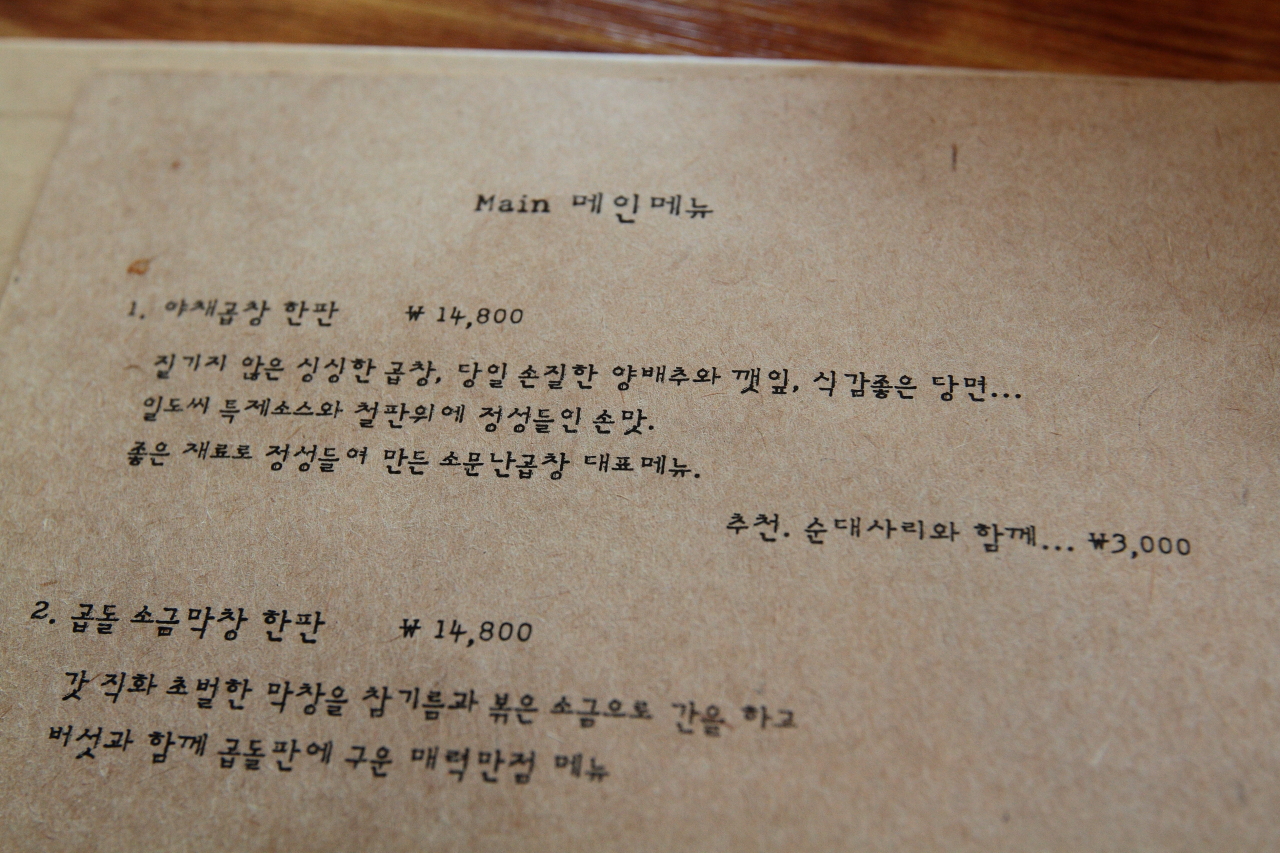 Main 메인메뉴
1. 야채곱창 한판 ₩ 14,800
질기지 않은 싱싱한 곱창, 당일 손질한 양배추와 깻잎, 식감좋은 당면...
일도씨 특제소스와 철판위에 정성들인 손맛.
좋은 재료로 정성들여 만든 소문난곱창 대표메뉴.
추천. 순대사리와 함께... ₩3,000
2. 곱돌 소금막창 한판 ₩ 14,800
갓 직화 초벌한 막창을 참기름과 볶은 소금으로 간을 하고
버섯과 함께 곱돌판에 구운 매력만점 메뉴